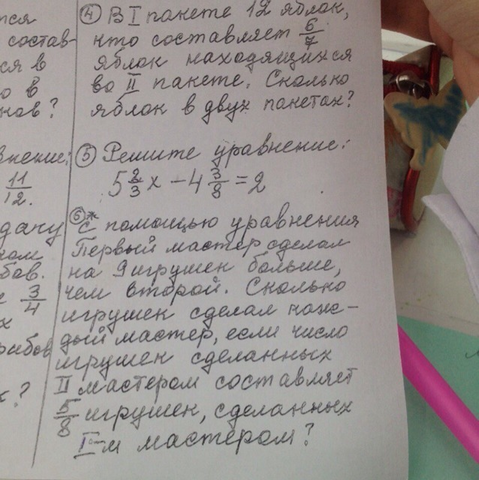 тся
состав-
ся в
о в
нов?
внение:
11/12.
дачу
ном
бов.
3/4
х
рибов
х?
④ В I пакете 12 яблок,
что составляет 6/7
яблок находящихся
во II пакете. Сколько
яблок в двух пакетах?
⑤ Решите уравнение:
5 2/3 x - 4 3/8 = 2
⑥* С помощью уравнения
Первый мастер сделал
на 9 игрушек больше,
чем второй. Сколько
игрушек сделал каж-
дый мастер, если число
игрушек сделанных
II мастером составляет
5/8 игрушек, сделанных
I-м мастером?